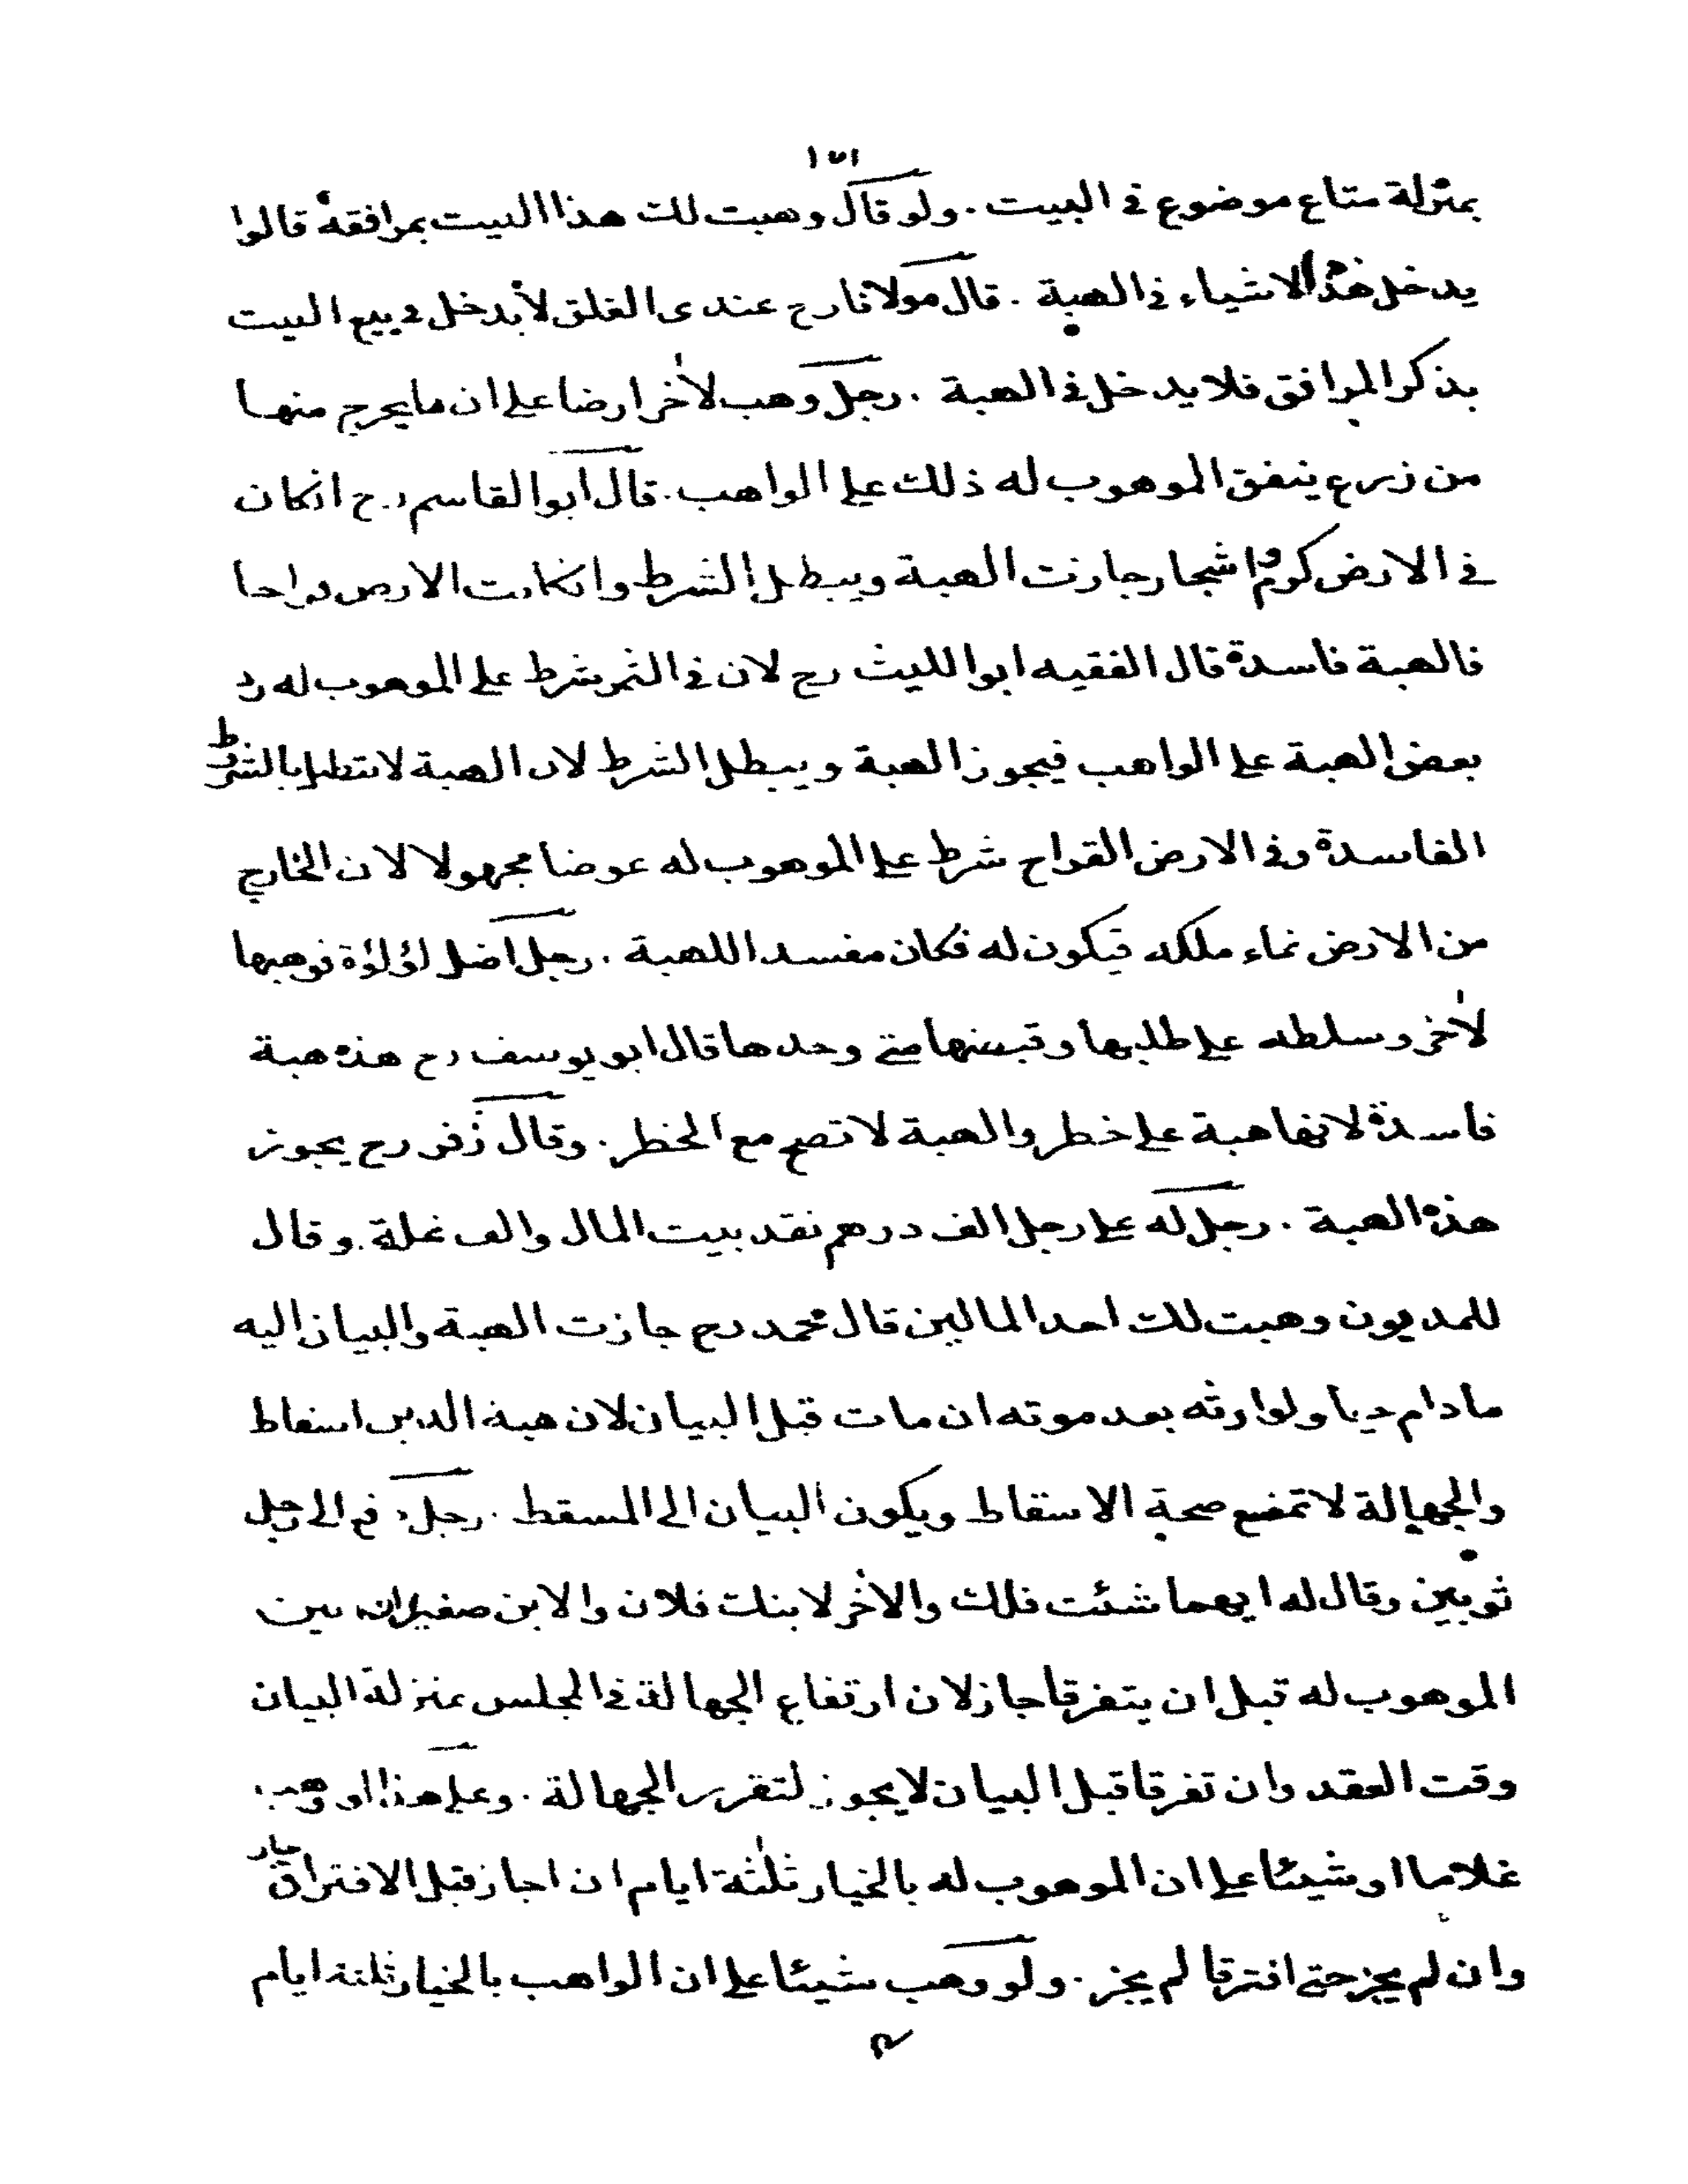 بمنزلة متاع موضوع في البيت . ولو قال وهبت لك هذا البيت بمرافقه قالوا
يدخل هذه الاشياء في الهبة . قال مولانا رح عندى الغلق لا يدخل في بيع البيت
بذكر المرافق فلا يدخل في الهبة . رجل وهب لاخر ارضا على ان ما يخرج منها
من زرع ينفق الموهوب له ذلك على الواهب . قال ابو القاسم رح ان كان
في الارض كروم اشجار جازت الهبة ويبطل الشرط وانكانت الارض قراحا
فالهبة فاسدة قال الفقيه ابو الليث رح لان في الثمر شرط على الموهوب له رد
بعض الهبة على الواهب فيجوز الهبة ويبطل الشرط لان الهبة لا تبطل بالشرط
الفاسدة وفي الارض القراح شرط على الموهوب له عوضا مجهولا لان الخارج
من الارض نماء ملكه فيكون له فكان مفسدا للهبة . رجل اضل لؤلؤة فوهبها
لاخر وسلطه على طلبها وقبضها متى وجدها قال ابو يوسف رح هذه هبة
فاسدة لانها هبة على خطر والهبة لا تصح مع الخطر . وقال زفر رح يجوز
هذه الهبة . رجل له على رجل الف درهم نقد بيت المال والف غلة . وقال
للمديون وهبت لك احد المالين قال محمد رح جازت الهبة والبيان اليه
مادام حيا ولوارثه بعد موته ان مات قبل البيان لان هبة الدين اسقاط
والجهالة لا تمنع صحة الاسقاط ويكون البيان الى المسقط . رجل دفع الى رجل
ثوبين وقال له ايهما شئت فلك والاخر لابنك فلان والابن صغير ان بين
الموهوب له قبل ان يتفرقا جاز لان ارتفاع الجهالة في المجلس بمنزلة البيان
وقت العقد وان تفرقا قبل البيان لا يجوز لتقرر الجهالة . وعلى هذا لو وهب
غلاما او شيئا على ان الموهوب له بالخيار ثلثة ايام ان اجاز قبل الافتراق جاز
وان لم يجز حتى افترقا لم يجز . ولو وهب شيئا على ان الواهب بالخيار ثلثة ايام